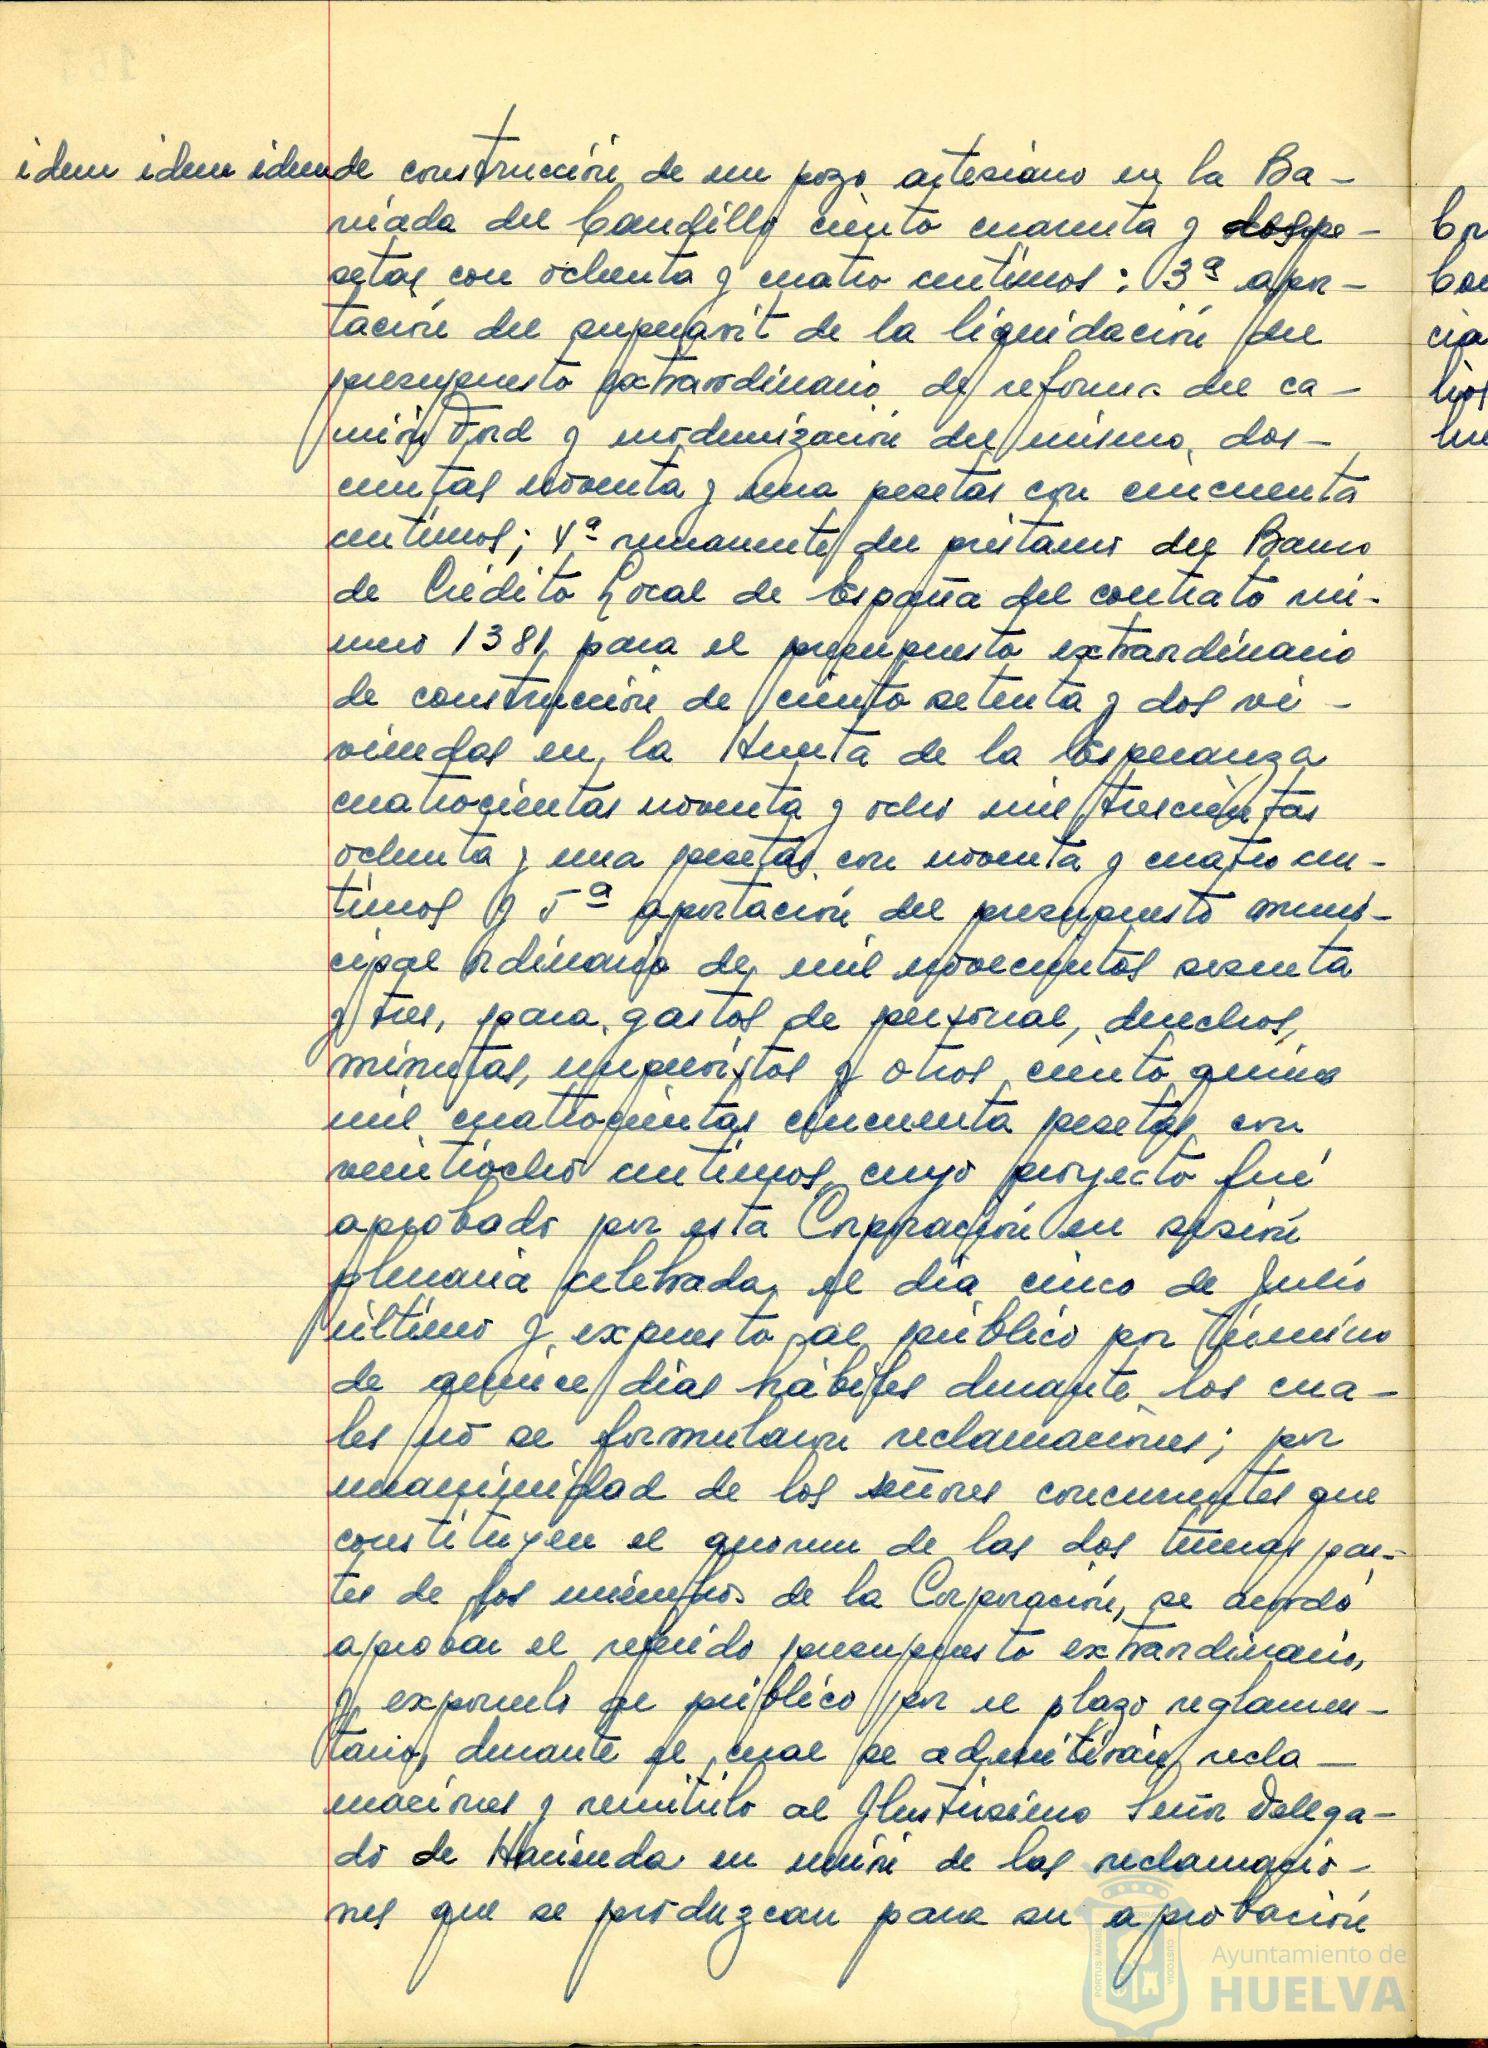 idem idem idem de construcción de un pozo artesiano en la Ba-
rriada del Caudillo ciento cuarenta y dos pe-
setas con ochenta y cuatro centimos; 3ª apor-
tación del superavit de la liquidación del
presupuesto extraordinario de reforma del ca-
mión Ford y modernización del mismo, dos-
cientas noventa y una pesetas con cincuenta
centimos; 4ª remanente del préstamo del Banco
de Crédito Local de España del contrato nú-
mero 1381 para el presupuesto extraordinario
de construcción de ciento setenta y dos vi-
viendas en la Huerta de la Esperanza
cuatrocientas noventa y ocho mil trescientas
ochenta y una pesetas con noventa y cuatro cen-
timos y 5ª aportación del presupuesto muni-
cipal ordinario de mil novecientos sesenta
y tres, para gastos de personal, derechos,
minutas, imprevistos y otros ciento quince
mil cuatrocientas cincuenta pesetas con
veintiocho centimos, cuyo proyecto fué
aprobado por esta Corporación en sesión
plenaria celebrada el día cinco de Julio
último y expuesto al público por término
de quince días hábiles durante los cua-
les no se formularon reclamaciones; por
unanimidad de los señores concurrentes que
constituyen el quorum de las dos terceras par-
tes de los miembros de la Corporación, se acordó
aprobar el referido presupuesto extraordinario,
y exponerlo al público por el plazo reglamen-
tario, durante el cual se admitirán recla-
maciones y remitirlo al Ilustrisimo Señor Delega-
do de Hacienda en unión de las reclamacio-
nes que se produzcan para su aprobación
Ayuntamiento de
HUELVA